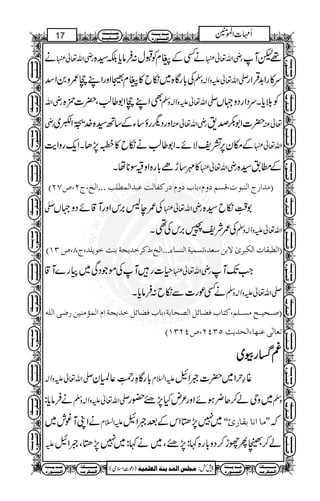 17 اُمہات المؤمنین
تھے لیکن آپ رضی اللہ تعالٰی عنہا نے کسی کے پیغام کو قبول نہ فرمایا بلکہ سیدہ رضی اللہ تعالٰی عنہا نے
سرکار ابد قرار صلی اللہ تعالٰی علیہ والہ وسلم کی بارگاہ میں نکاح کا پیغام بھیجا اور اپنے چچا عمرو بن اسد
کو بلایا۔ سردار دو جہاں صلی اللہ تعالٰی علیہ والہ وسلم بھی اپنے چچا ابوطالب، حضرت حمزہ رضی اللہ
تعالٰی عنہ حضرت ابوبکر صدیق رضی اللہ تعالٰی عنہ اور دیگر رؤساء کے ساتھ سیدہ خدیجۃ الکبریٰ رضی
اللہ تعالٰی عنہا کے مکان پر تشریف لائے۔ ابوطالب نے نکاح کا خطبہ پڑھا۔ ایک روایت
کے مطابق سیدہ رضی اللہ تعالٰی عنہا کا مہر ساڑھے بارہ اوقیہ سونا تھا۔
(مدارج النبوت، قسم دوم، باب دوم درکفالت عبدالمطلب ...الخ، ج۲، ص۲۷)
بوقتِ نکاح سیدہ رضی اللہ تعالٰی عنہا کی عمر چالیس برس اور آقائے دو جہاں صلی
اللہ تعالٰی علیہ والہ وسلم کی عمر شریف پچیس برس کی تھی۔
(الطبقات الکبریٰ لابن سعد، تسمیة النساء...الخ، ذکر خدیجة بنت خویلد، ج۸، ص ۱۳)
جب تک آپ رضی اللہ تعالٰی عنہا حیات رہیں آپ کی موجودگی میں پیارے آقا
صلی اللہ تعالٰی علیہ والہ وسلم نے کسی عورت سے نکاح نہ فرمایا۔
(صحیح مسلم، کتاب فضائل الصحابة، باب فضائل خدیجة ام المؤمنین رضی الله
تعالٰی عنها، الحدیث ۲۴۳۵، ص۱۳۲۴)
غم گسار بیوی
غارِ حرا میں حضرت جبرائیل علیہ السلام بارگاہِ رحمتِ عالمیان صلی اللہ تعالٰی علیہ والہ
وسلم میں وحی لے کر حاضر ہوئے اور عرض کیا پڑھئے حضور صلی اللہ تعالٰی علیہ والہ وسلم نے فرمایا:
کہ "ما انا بقارئ" میں نہیں پڑھتا اس کے بعد جبرائیل علیہ السلام نے اپنی آغوش میں
لے کر بھینچا پھر چھوڑ کر دوبارہ کہا: پڑھئے، میں نے کہا: میں نہیں پڑھتا، جبرئیل علیہ
پیش کش: مجلس المدینة العلمیة (دعوتِ اسلامی)